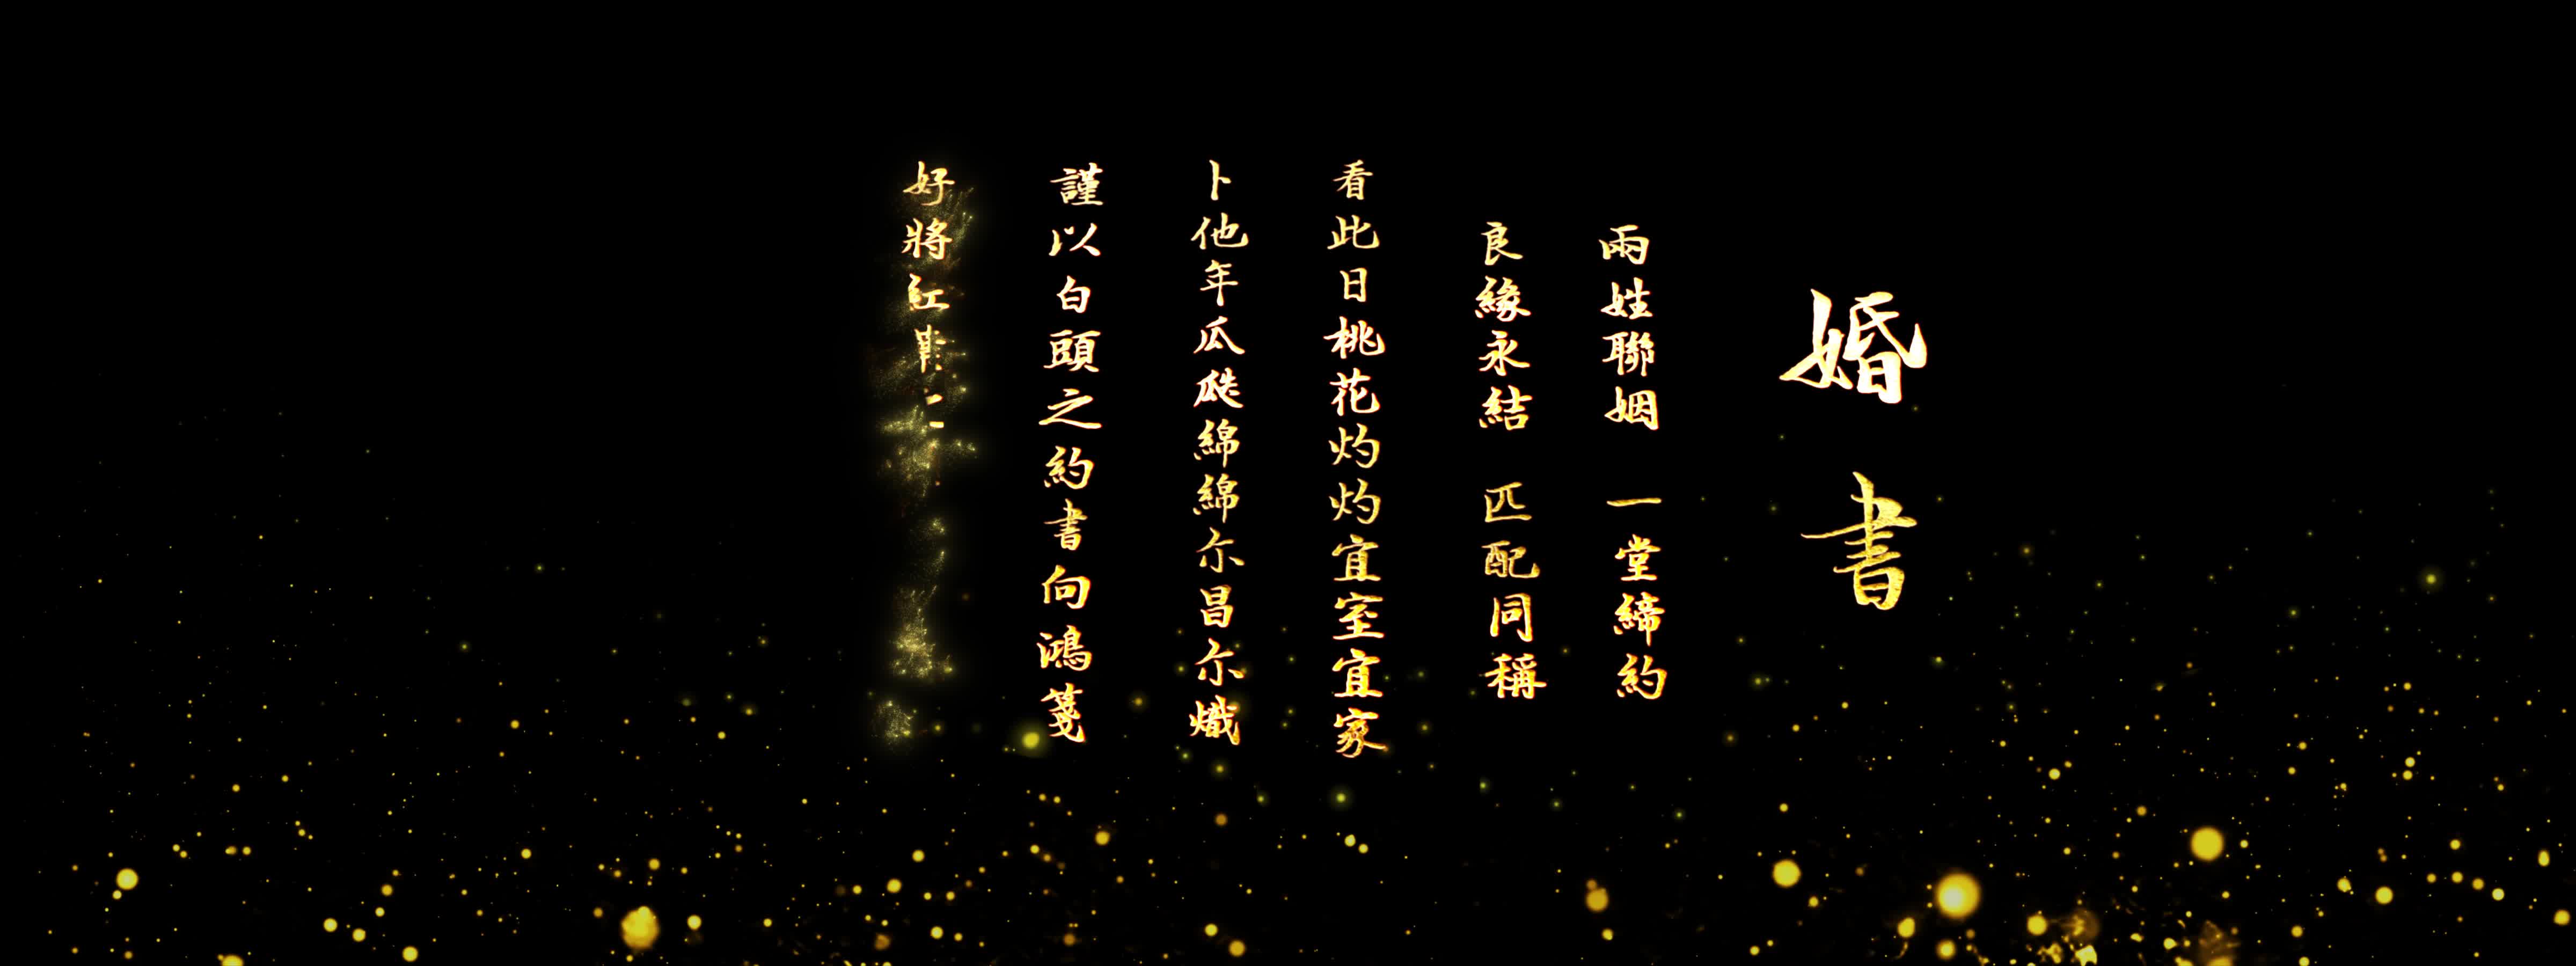 婚書
兩姓聯姻 一堂締約
良緣永結 匹配同稱
看此日桃花灼灼宜室宜家
卜他年瓜瓞綿綿尔昌尔熾
謹以白頭之約書向鴻箋
好將紅